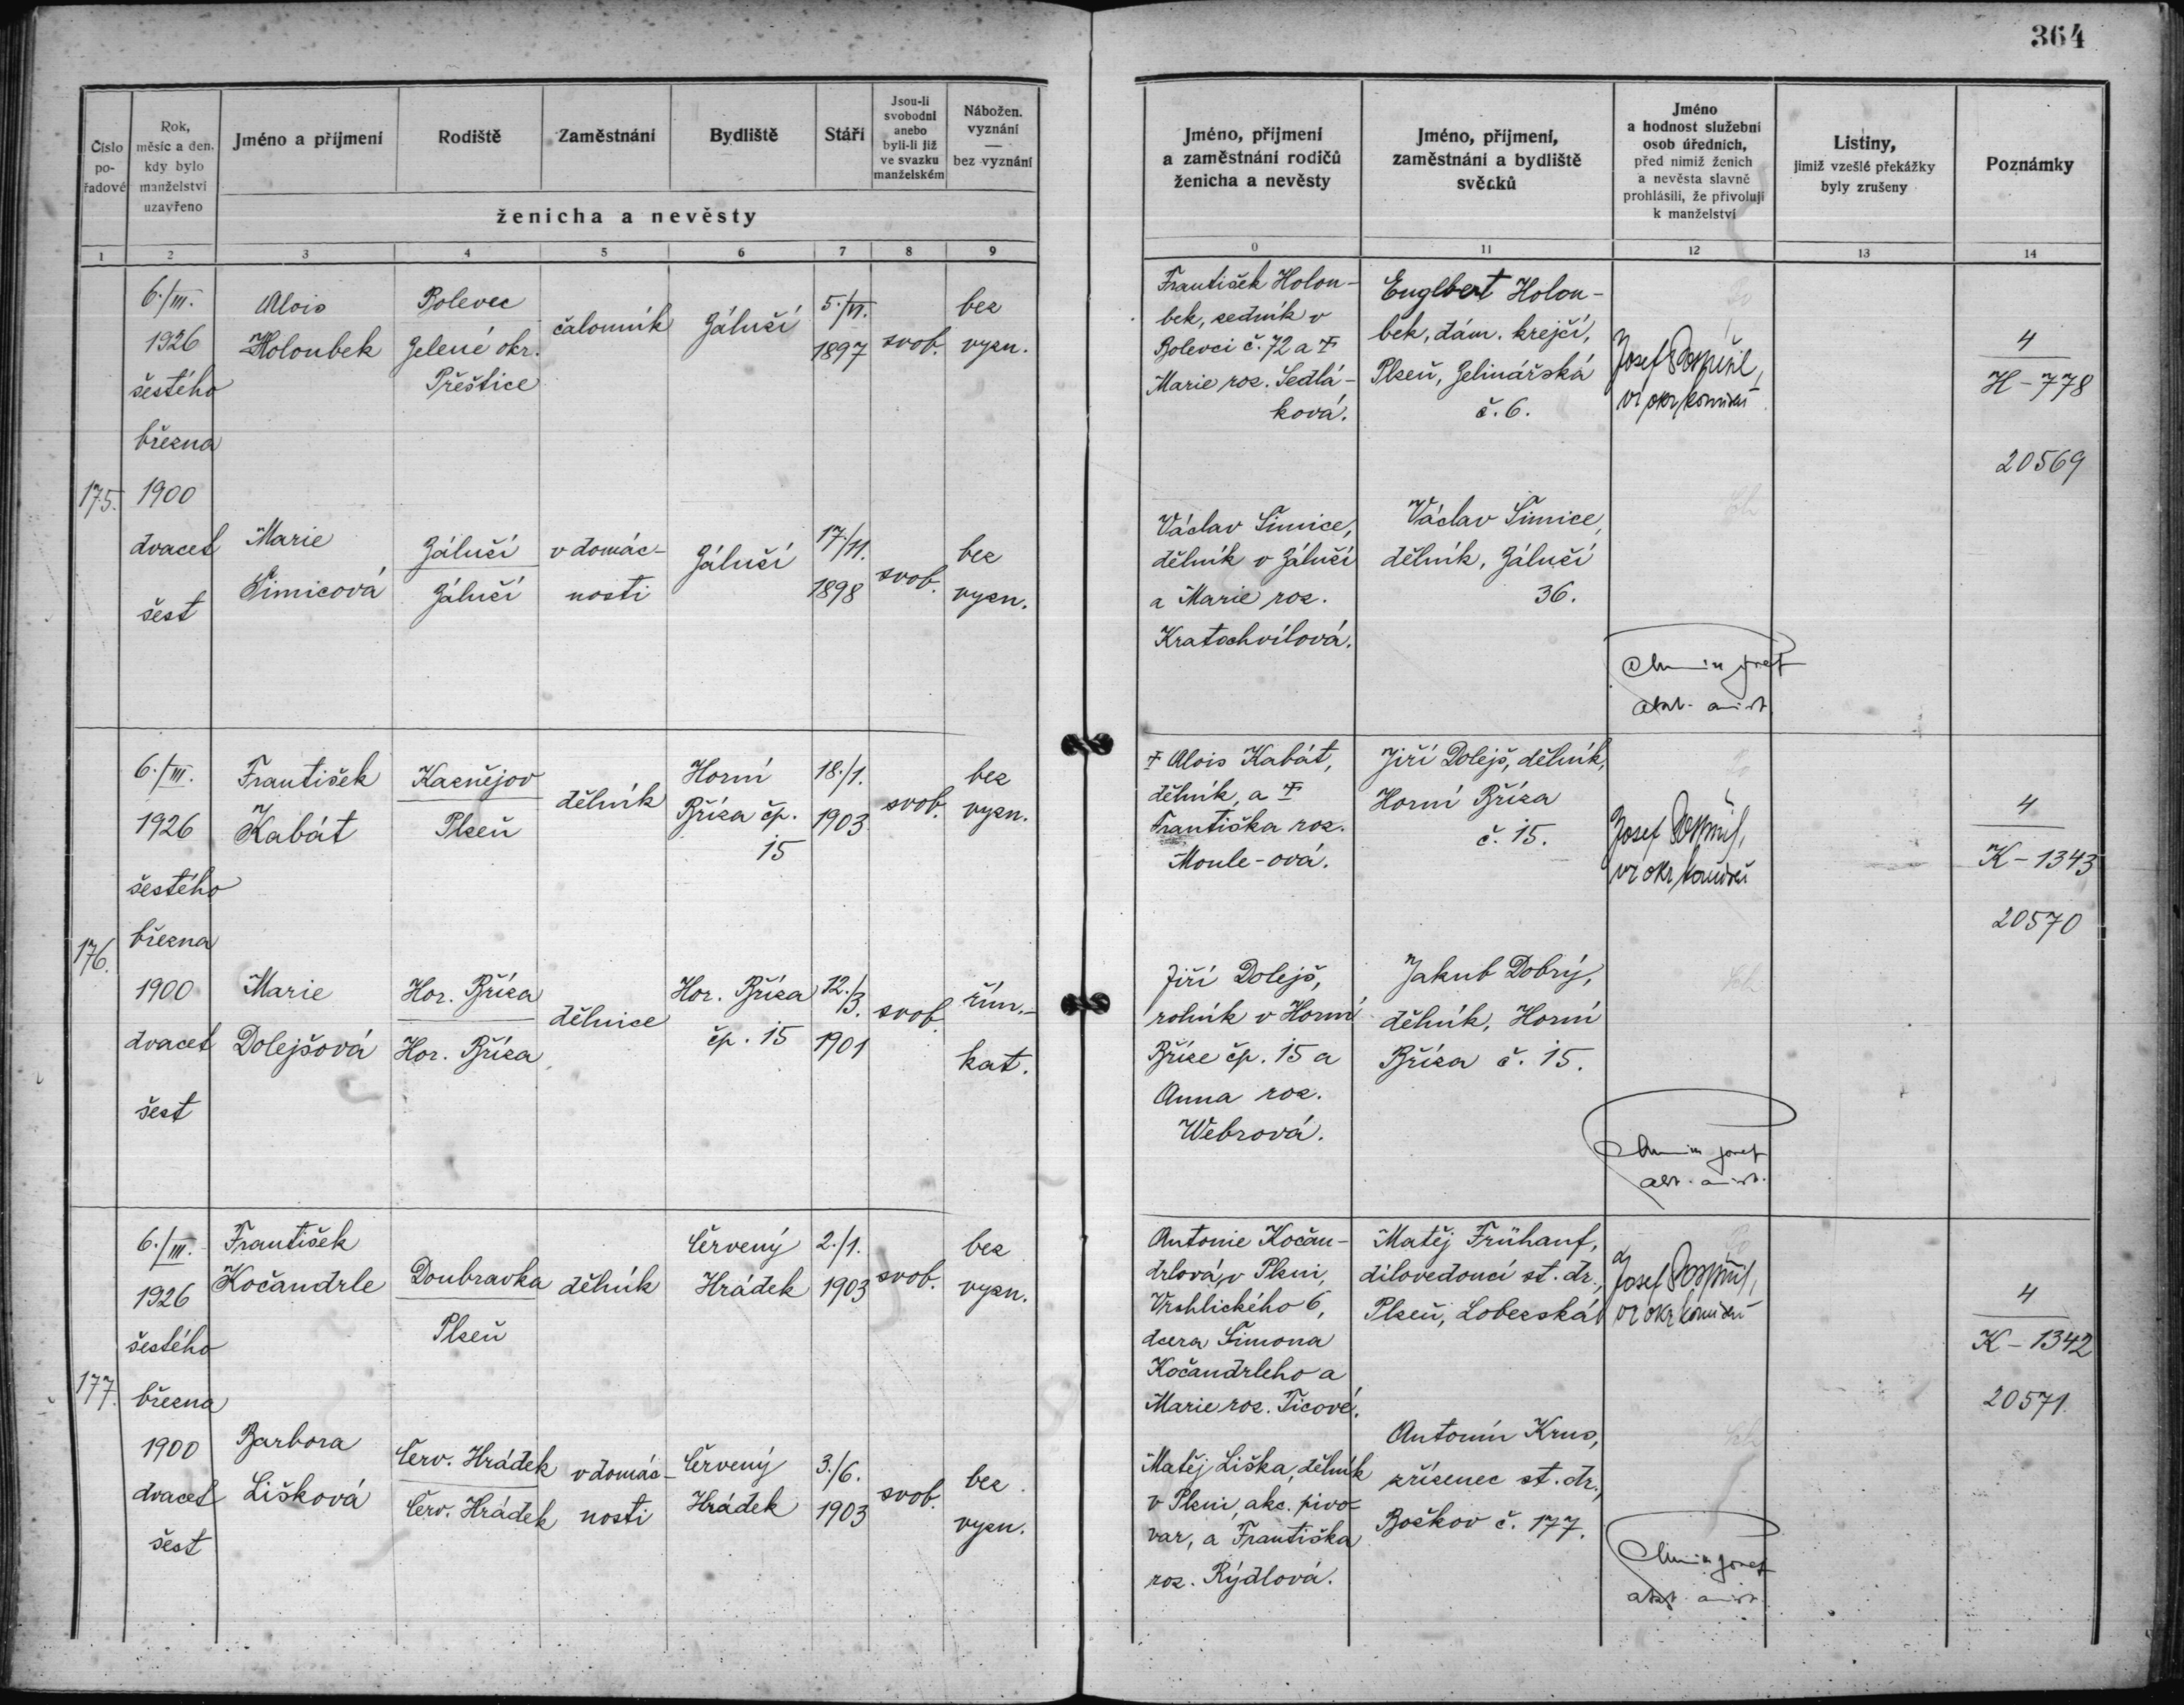 364
Číslo pořadové
Rok, měsíc a den, kdy bylo manželství uzavřeno
Jméno a příjmení
Rodiště
Zaměstnání
Bydliště
Stáří
Jsou-li svobodni anebo byli-li již ve svazku manželském
Nábožen. vyznání — bez vyznání
ženicha a nevěsty
Jméno, příjmení a zaměstnání rodičů ženicha a nevěsty
Jméno, příjmení, zaměstnání a bydliště svědků
Jméno a hodnost služební osob úředních, před nimiž ženich a nevěsta slavně prohlásili, že přivolují k manželství
Listiny, jimiž vzešlé překážky byly zrušeny
Poznámky
1 2 3 4 5 6 7 8 9 0 11 12 13 14
175.
6./III.
1926
šestého
března
1900
dvacet
šest
Alois
Holoubek
Bolevec
Zelené okr.
Přeštice
čalouník
Záluží
5./VI.
1897
svob.
bez
vyzn.
František Holou-
bek, sedník v
Bolevci č. 72 a †
Marie roz. Sedlá-
ková.
Englbert Holou-
bek, dám. krejčí,
Plzeň, Zelinářská
č. 6.
Josef Pospíšil,
vr. okr. komisař
4
H-778
20569
Marie
Šimicová
Záluží
Záluží
v domác-
nosti
Záluží
17./11.
1898
svob.
bez
vyzn.
Václav Šimice,
dělník v Záluží
a Marie roz.
Kratochvílová.
Václav Šimice,
dělník, Záluží
36.
176.
6./III.
1926
šestého
března
1900
dvacet
šest
František
Kabát
Kaznějov
Plzeň
dělník
Horní
Bříza čp.
15
18./1.
1903
svob.
bez
vyzn.
† Alois Kabát,
dělník, a †
Františka roz.
Moule-ová.
Jiří Dolejš, dělník,
Horní Bříza
č. 15.
Josef Pospíšil,
vr. okr. komisař
4
K-1343
20570
Marie
Dolejšová
Hor. Bříza
Hor. Bříza
dělnice
Hor. Bříza
čp. 15
12./3.
1901
svob.
řím.-
kat.
Jiří Dolejš,
rolník v Horní
Bříze čp. 15 a
Anna roz.
Webrová.
Jakub Dobrý,
dělník, Horní
Bříza č. 15.
177.
6./III.
1926
šestého
března
1900
dvacet
šest
František
Kočandrle
Doubravka
Plzeň
dělník
Červený
Hrádek
2./1.
1903
svob.
bez
vyzn.
Antonie Kočan-
drlová, v Plzni,
Vrchlického 6,
dcera Šimona
Kočandrleho a
Marie roz. Ticové.
Matěj Frühauf,
dílovedoucí st. dr.,
Plzeň, Lobezská
Josef Pospíšil,
vr. okr. komisař
4
K-1342
20571.
Barbora
Lišková
Červ. Hrádek
Červ. Hrádek
v domác-
nosti
Červený
Hrádek
3./6.
1903
svob.
bez
vyzn.
Matěj Liška, dělník
v Plzni, akc. pivo-
var, a Františka
roz. Rýdlová.
Antonín Krus,
zřízenec st. dr.,
Božkov č. 177.